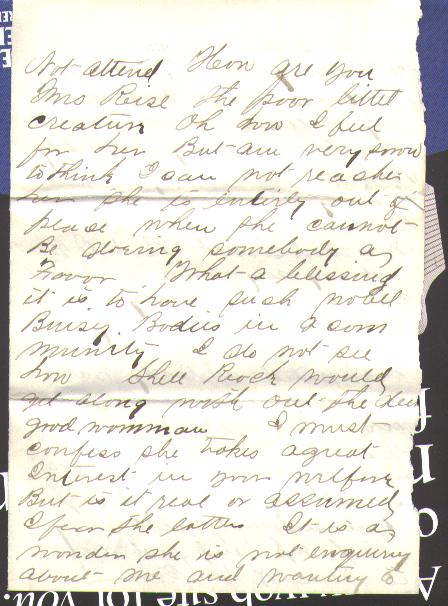 Not attend How are you
Mrs Reise the poor littel
creature Oh how I feel
for her But am very sorrow
to think I can not reache
her She is entirly out of
place when she cannot
Be doeing somebody a
Favor. What a blessing
it is to have such noble
Buisey Bodies in a com
munity I do not see
how Shell Rock would
get along with out the dear
good womman I must
confess she takes a great
Interest in your welfare
But is it real or assumed
I fear the latter It is a
wonder she is not enquiring
about me and wanting to
A
web site for you.